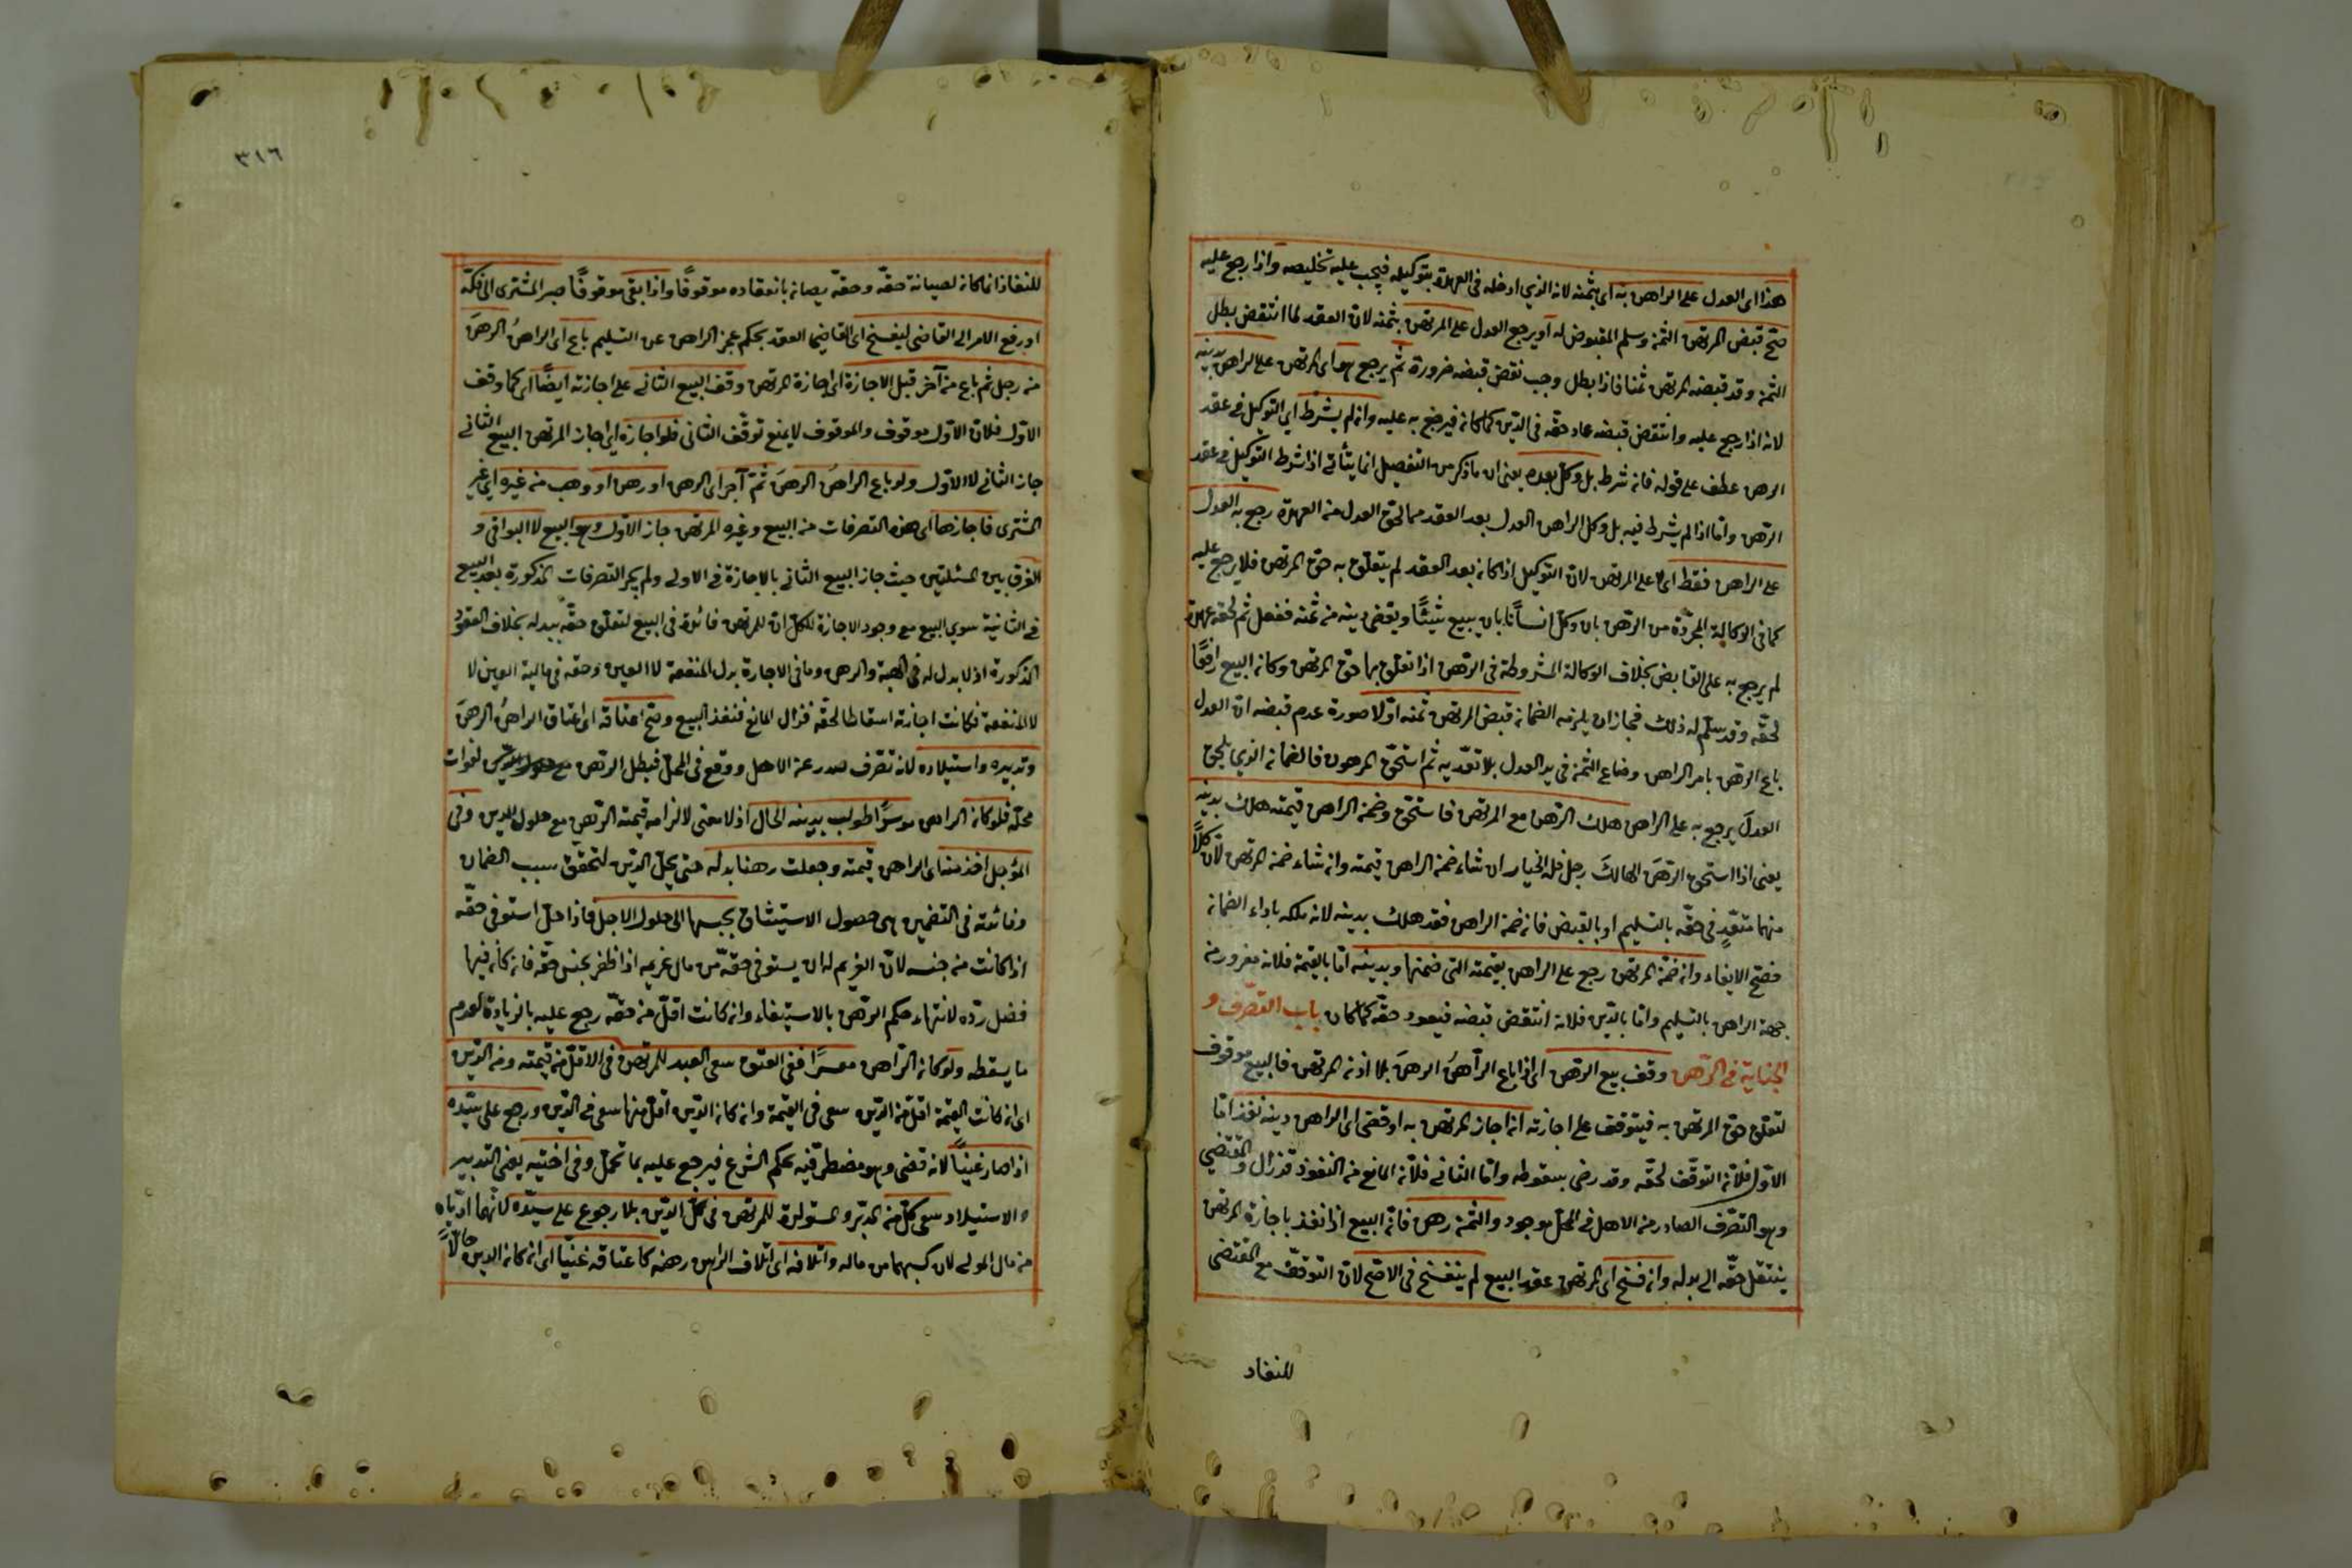 هذا اى العدل على الراهن به اى بثمنه لانه الذي ادخله فى العهدة بتوكيله فيجب عليه تخليصه واذا رجع عليه
صح قبض المرتهن الثمن وسلم المقبوض له او يرجع العدل على المرتهن بثمنه لان العقد لما انتقض بطل
الثمن وقد قبضه المرتهن ثمنا فاذا بطل وجب نقض قبضه ضرورة ثم يرجع هو اى المرتهن على الراهن بدينه
لانه اذا رجع عليه وانتقض قبضه عاد حقه فى الدين كما كان فيرجع به عليه وان لم يشرط اى التوكيل فى عقد
الرهن عطف على قوله فان شرط بل وكل بعده يعنى ان ما ذكر من التفصيل انما يتأتى اذا شرط التوكيل فى عقد
الرهن واما اذا لم يشرط فيه بل وكل الراهن العدل بعد العقد فما لحق العدل من العهدة رجع به العدل
على الراهن فقط اى لا على المرتهن لان التوكيل اذا كان بعد العقد لم يتعلق به حق المرتهن فلا يرجع عليه
كما فى الوكالة المجردة من الرهن بان وكل انسانا بان يبيع شيئا ويقضى دينه من ثمنه ففعل ثم لحقه عهدة
لم يرجع به على القابض بخلاف الوكالة المشروطة فى الرهن اذا تعلق بها حق المرتهن وكان البيع واقعا
لحقه وقد سلم له ذلك فجاز ان يلزمه الضمان قبض المرتهن ثمنه او لا صورة عدم قبضه ان العدل
باع الرهن بامر الراهن وضاع الثمن فى يد العدل بلا تعديه ثم استحق المرهون فالضمان الذي يلحق
العدل يرجع به على الراهن هلك الرهن مع المرتهن فاستحق وضمن الراهن قيمته هلك بدينه
يعنى اذا استحق الرهن الهالك رجل فله الخيار ان شاء ضمن الراهن قيمته وان شاء ضمن المرتهن لان كلا
منهما متعد فى حقه بالتسليم او بالقبض فان ضمن الراهن فقد هلك بدينه لانه ملكه باداء الضمان
فصح الايفاء وان ضمن المرتهن رجع على الراهن بقيمته التى ضمنها وبدينه اما بالقيمة فلانه مغرور من
جهة الراهن بالتسليم واما بالدين فلانه انتقض قبضه فيعود حقه كما كان باب التصرف و
الجناية فى الرهن وقف بيع الرهن اى اذا باع الراهن الرهن بلا اذن المرتهن فالبيع موقوف
لتعلق حق المرتهن به فيتوقف على اجازته ان اجاز المرتهن به او قضى اى الراهن دينه نفذ اما
الاول فلان التوقف لحقه وقد رضى بسقوطه واما الثانى فلان المانع من النفوذ قد زال والمقتضى
وهو التصرف الصادر من الاهل فى المحل موجود والثمن رهن فان البيع اذا نفذ باجازة المرتهن
ينتقل حقه الى بدله وان فسخ اى المرتهن عقد البيع لم ينفسخ فى الاصح لان التوقف مع المقتضى
للنفاد
٣١٦
للنفاذ انما كان لصيانة حقه وحقه يصان بانعقاده موقوفا واذا بقى موقوفا صبر المشترى الى فكه
او رفع الامر الى القاضى ليفسخ اى القاضى العقد بحكم عجز الراهن عن التسليم باع اى الراهن الرهن
من رجل ثم باع من آخر قبل الاجازة اى اجازة المرتهن وقف البيع الثانى على اجازته ايضا اى كما وقف
الاول فلان الاول موقوف والموقوف لا يمنع توقف الثانى فلو اجازه اى اجاز المرتهن البيع الثانى
جاز الثانى لا الاول ولو باع الراهن الرهن ثم آجر اى الرهن او رهن او وهب من غيره اى غير
المشترى فاجازها اى هذه التصرفات من البيع وغيره المرتهن جاز الاول وهو البيع لا البواقى و
الفرق بين المسئلتين حيث جاز البيع الثانى بالاجازة فى الاولى ولم يجز التصرفات المذكورة بعد البيع
فى الثانية سوى البيع مع وجود الاجازة للكل ان للمرتهن فائدة فى البيع لتعلق حقه ببدله بخلاف العقود
المذكورة اذ لا بدل له فى الهبة والرهن وما فى الاجارة بدل المنفعة لا العين وحقه فى مالية العين لا
لا المنفعة فكانت اجازته اسقاطا لحقه فزال المانع فنفذ البيع وصح اعتاقه اى اعتاق الراهن الرهن
وتدبيره واستيلاده لانه تصرف صدر عن الاهل ووقع فى المحل فبطل الرهن لفوات
محله فلو كان الراهن موسرا طولب بدينه الحال اذ لا معنى لالزامه قيمته الرهن مع حلول الدين وفى
المؤجل اخذ منه اى الراهن قيمته وجعلت رهنا بدله حتى يحل الدين لتحقق سبب الضمان
وفائدته فى التضمين هى حصول الاستيثاق بحبسها الى حلول الاجل فاذا حل استوفى حقه
اذا كانت من جنسه لان الغريم له ان يستوفى حقه من مال غريمه اذا ظفر بجنس حقه فان كان فيها
فضل رده لانتهاء حكم الرهن بالاستيفاء وان كانت اقل من حقه رجع عليه بالزيادة لعدم
ما يسقطه ولو كان الراهن معسرا ففى العتق سعى العبد للمرتهن فى الاقل من قيمته ومن الدين
اى ان كانت القيمة اقل من الدين سعى فى القيمة وان كان الدين اقل منها سعى فى الدين ورجع على سيده
اذا صار غنيا لانه قضى وهو مضطر فيه بحكم الشرع فيرجع عليه بما تحمل وفى اختيه يعنى التدبير
والاستيلاد سعى كل من المدبر والمستولدة للمرتهن فى كل الدين بلا رجوع على سيده لانهما ادياه
من مال المولى لان كسبهما من ماله واتلافه اى اتلاف الراهن رهنه كاعتاقه غنيا اى ان كان الدين حالا